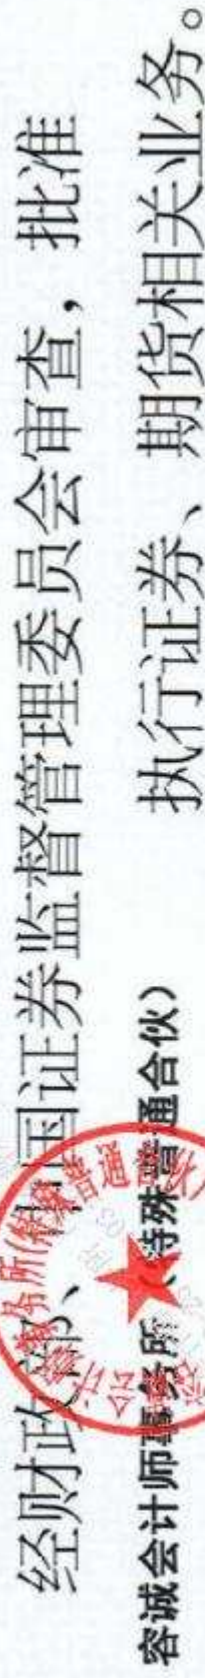 经财政部、中国证券监督管理委员会审查，批准
容诚会计师事务所（特殊普通合伙） 执行证券、期货相关业务。